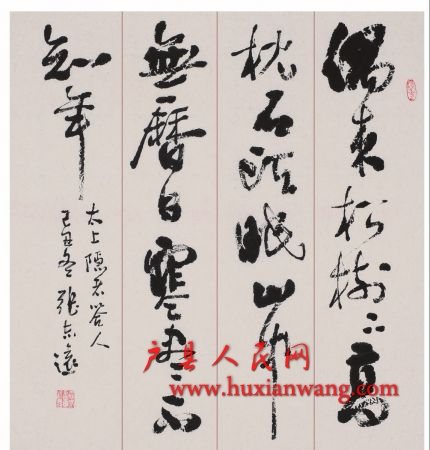 偶来松樹下高
枕石頭眠山中
無曆日寒盡不
知年
太上隱者答人
己丑冬 張
户县人民网
www.huxianwang.com